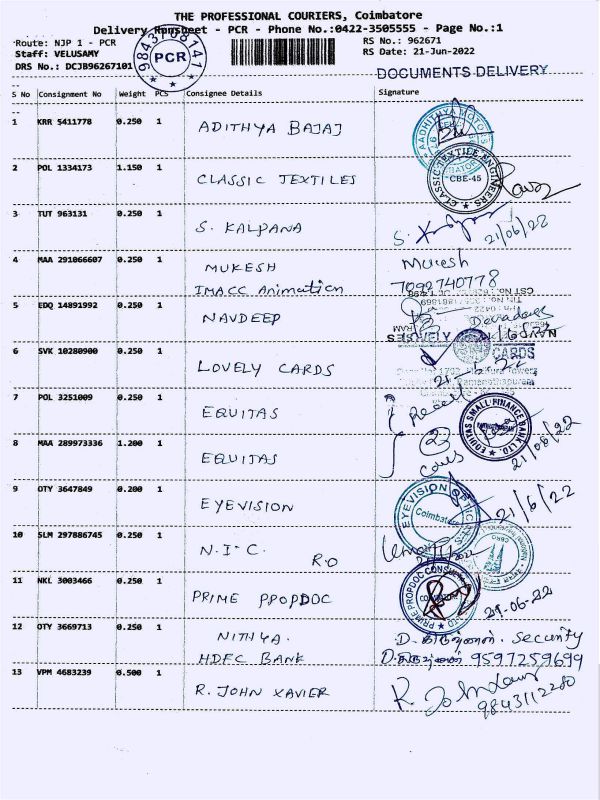 THE PROFESSIONAL COURIERS, Coimbatore
Delivery Runsheet - PCR - Phone No.:0422-3505555 - Page No.:1
Route: NJP 1 - PCR RS No.: 962671
Staff: VELUSAMY RS Date: 21-Jun-2022
DRS No.: DCJB96267101
PCR
DOCUMENTS DELIVERY
S No Consignment No Weight PCS Consignee Details Signature
1 KRR 5411778 0.250 1 ADITHYA BAJAJ
AADHITHYA MOTORS
2 POL 1334173 1.150 1 CLASSIC TEXTILES
CLASSIC TEXTILE ENGINEERS CBE-45
3 TUT 963131 0.250 1 S. KALPANA
21/06/22
4 MAA 291066607 0.250 1 MUKESH Mukesh
IMACC Animation 7092740778
5 EDQ 14891992 0.250 1 NAVDEEP
6 SVK 10280900 0.250 1 LOVELY CARDS
CARDS
7 POL 3251009 0.250 1 EQUITAS
EQUITAS SMALL FINANCE BANK LTD.
8 MAA 289973336 1.200 1 EQUITAS
2
21/06/22
9 OTY 3647849 0.200 1 EYEVISION
EYEVISION OPTICALS Coimbatore
21/6/22
10 SLM 297886745 0.250 1 N.I.C. RO
11 NKL 3003466 0.250 1 PRIME PROPDOC
PRIME PROPDOC
21-06-22
12 OTY 3669713 0.250 1 NITHYA. Security
HDFC BANK 9597259699
13 VPM 4683239 0.500 1 R. JOHN XAVIER R John
9843112280